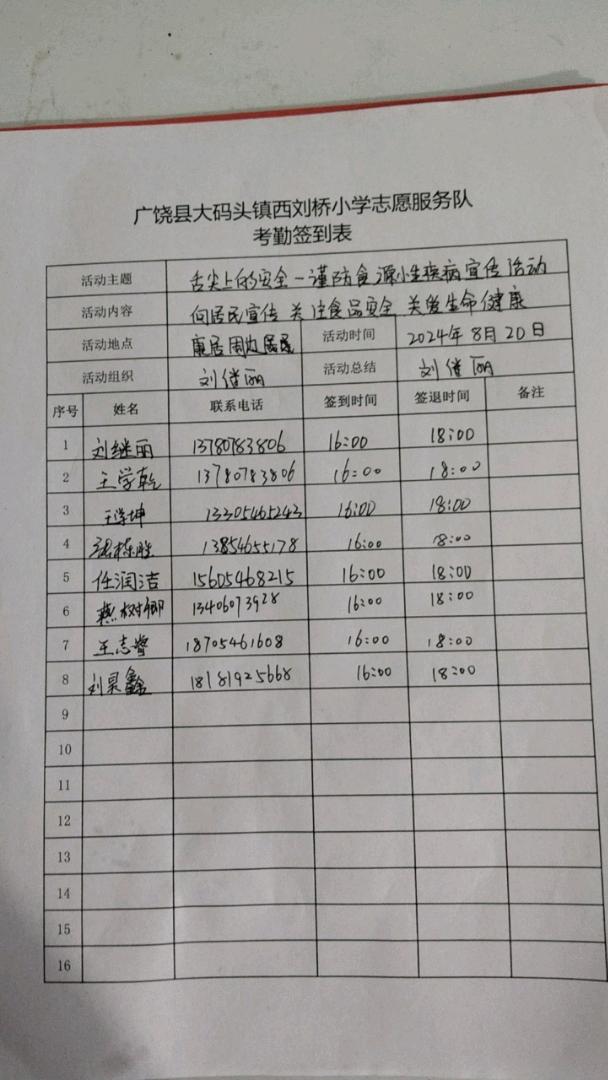 广饶县大码头镇西刘桥小学志愿服务队
考勤签到表
活动主题 舌尖上的安全－谨防食源小性疾病宣传活动
活动内容 向居民宣传 关注食品安全 关爱生命健康
活动地点 康居周边居民 活动时间 2024年8月20日
活动组织 刘继丽 活动总结 刘继丽
序号 姓名 联系电话 签到时间 签退时间 备注
1 刘继丽 13780783806 16:00 18:00
2 王学乾 13780783806 16:00 18:00
3 王学坤 13305465243 16:00 18:00
4 13854655178 16:00 18:00
5 任润洁 15605468215 16:00 18:00
6 燕树卿 13406073928 16:00 18:00
7 王志 18705461608 16:00 18:00
8 刘昊鑫 18181925668 16:00 18:00
9
10
11
12
13
14
15
16